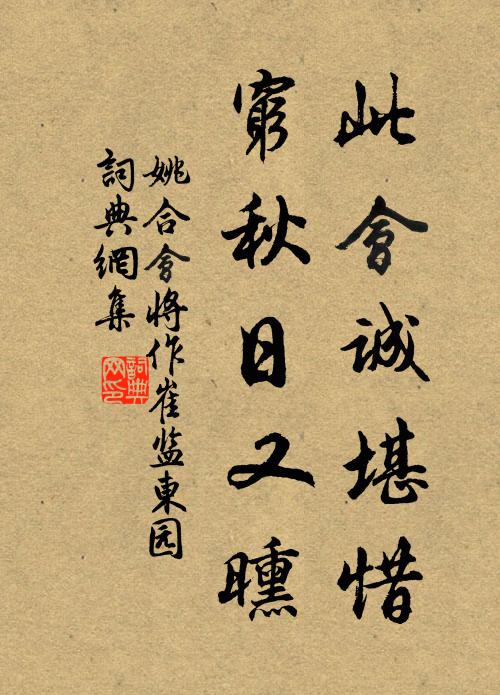 此會誠堪惜
窮秋日又曛
姚合會將作崔监東园
詞典網集
詞典网印